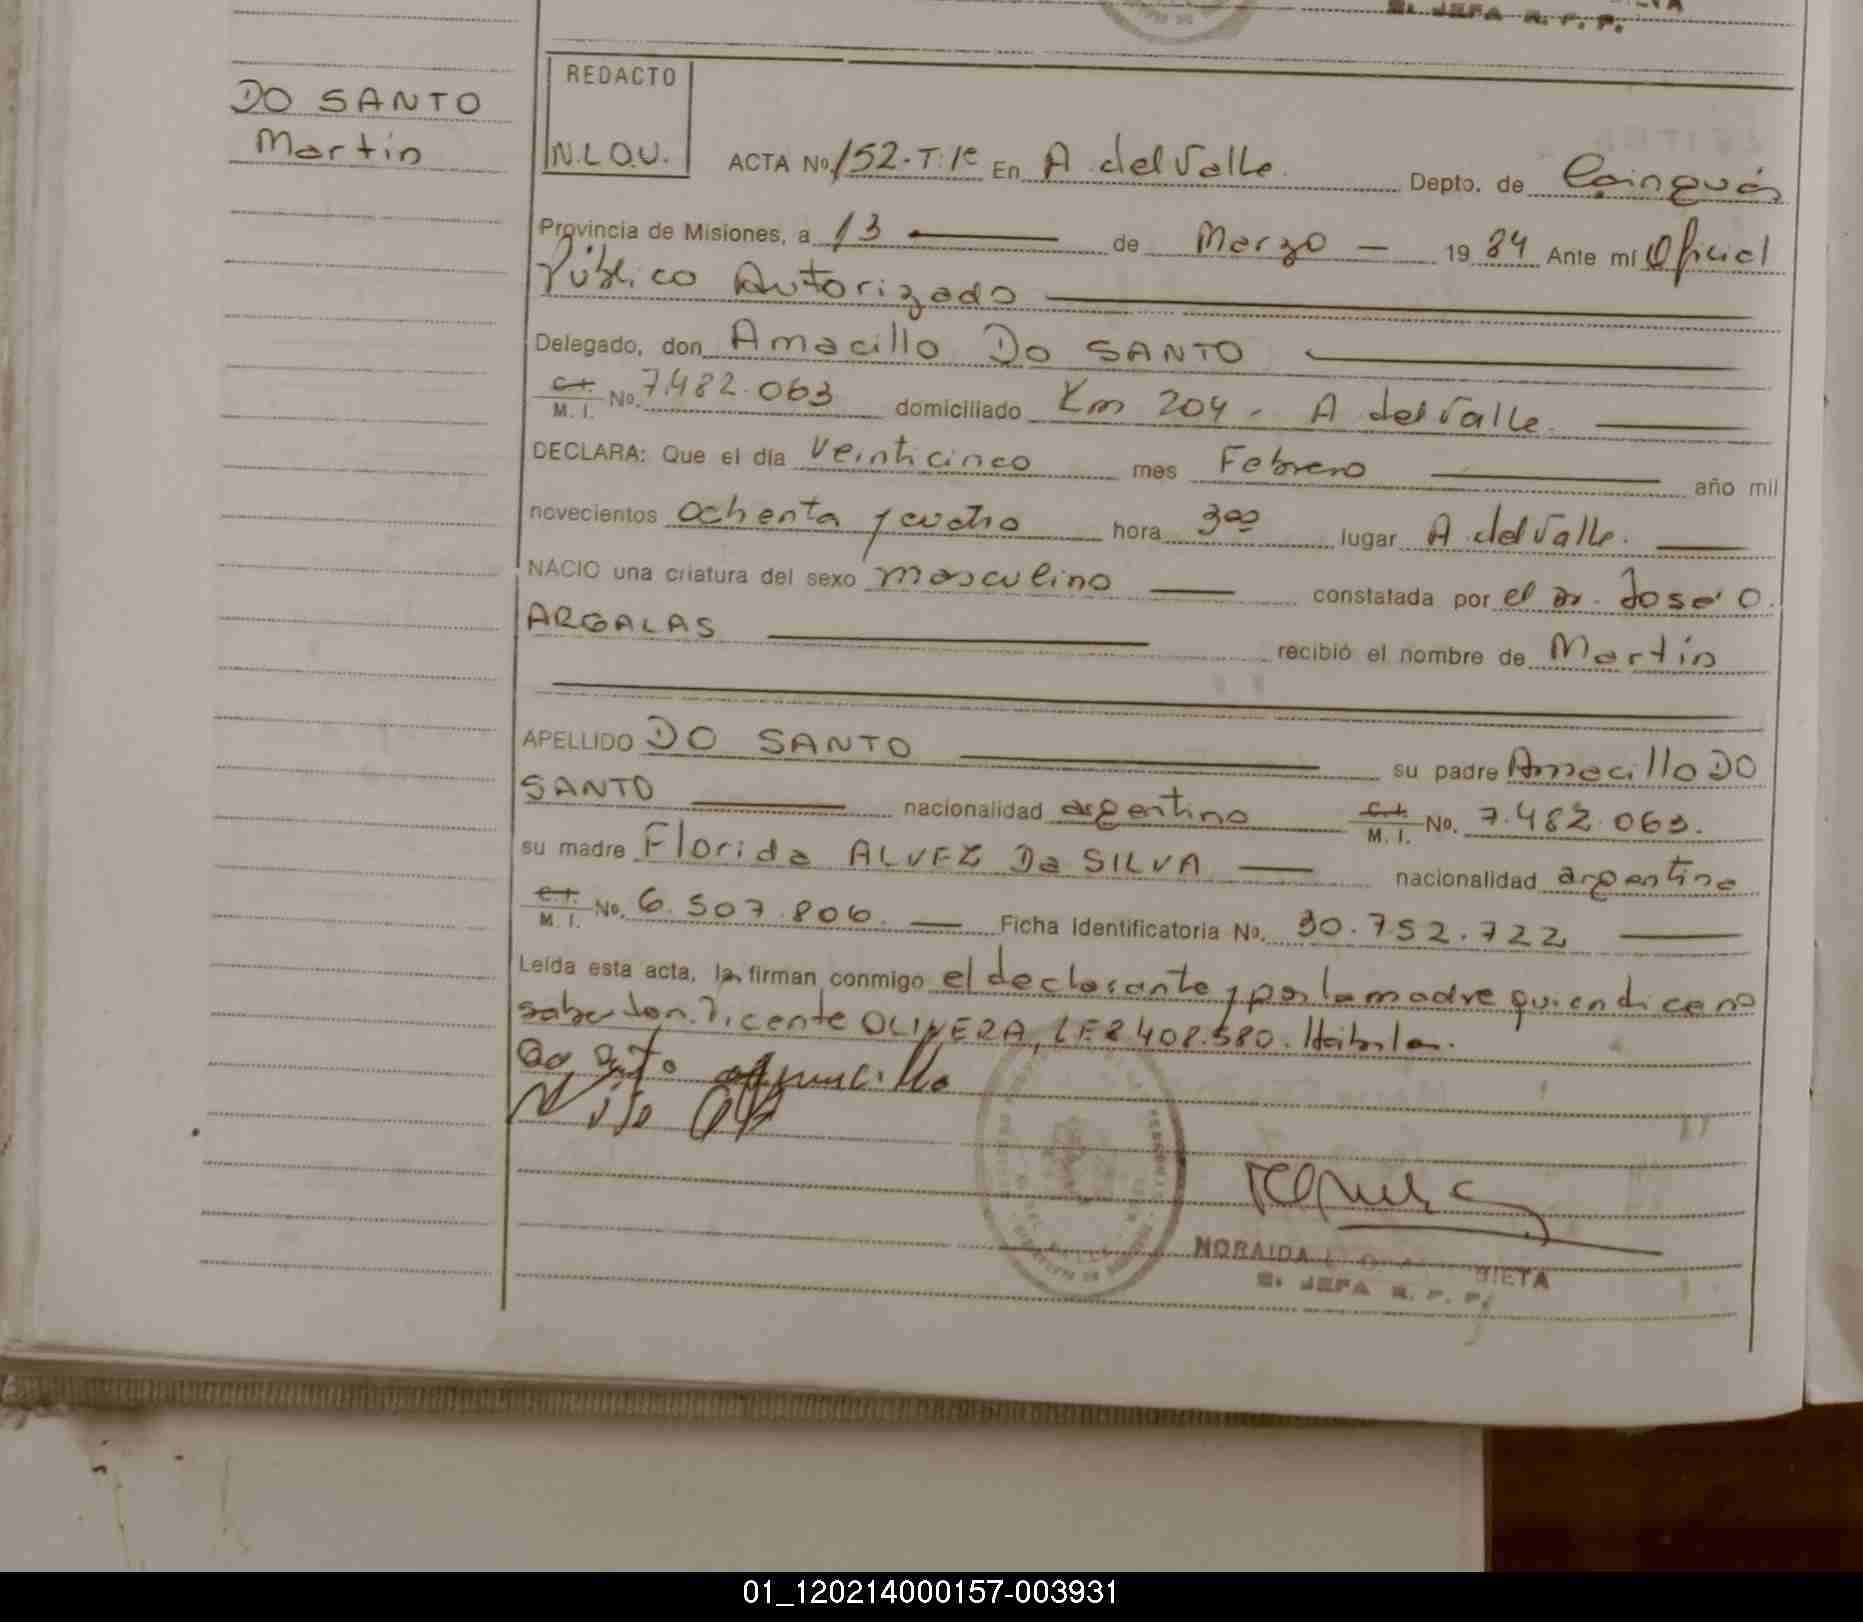 E. JEFA R. P. P.
DO SANTO
Martin
REDACTO
N.L.O.U.
ACTA No. 152.T:1º En A. del Valle. Depto. de Cainguás
Provincia de Misiones, a 13 de Marzo 1984 Ante mí Oficial
Público Autorizado
Delegado, don Amacillo Do SANTO
C.I. M. I. No. 7.482.063 domiciliado Km 204 - A. del Valle.
DECLARA: Que el día veinticinco mes Febrero año mil
novecientos ochenta y cuatro hora 3oo lugar A. del Valle.
NACIO una criatura del sexo masculino constatada por el Dr. José O.
ARGALAS recibió el nombre de Martín
APELLIDO DO SANTO su padre Amacillo DO
SANTO nacionalidad argentino C.I. M. I. No. 7.482.063.
su madre Florida ALVEZ Da SILVA nacionalidad argentina
C.I. M. I. No. 6.507.806. Ficha Identificatoria No. 30.752.722
Leída esta acta, la firman conmigo el declarante y por la madre quien dice no
saber don. Vicente OLIVERA, LE 8.408.580. Habilan.
Do Santo Amacillo
NORAIDA L. O. DIETA
E. JEFA R. P. P.
01_120214000157-003931